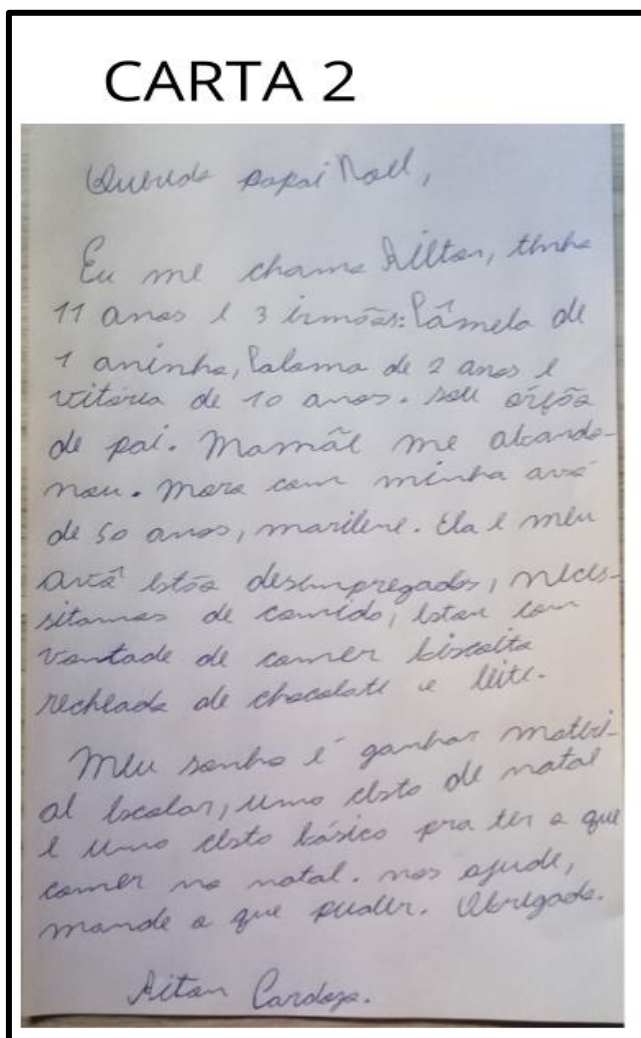 CARTA 2
Querido papai Noel,
Eu me chamo Ailton, tenho
11 anos e 3 irmãos: Pâmela de
1 aninho, Paloma de 2 anos e
vitória de 10 anos. sou órfão
de pai. Mamãe me abando-
nou. Moro com minha avó
de 50 anos, marilene. Ela e meu
avô estão desempregados, neces-
sitamos de comida, estou com
vontade de comer biscoito
recheado de chocolate e leite.
Meu sonho é ganhar materi-
al escolar, uma cesta de natal
e uma cesta básica pra ter o que
comer no natal. nos ajude,
mande o que puder. Obrigado.
Aiton Cardozo.